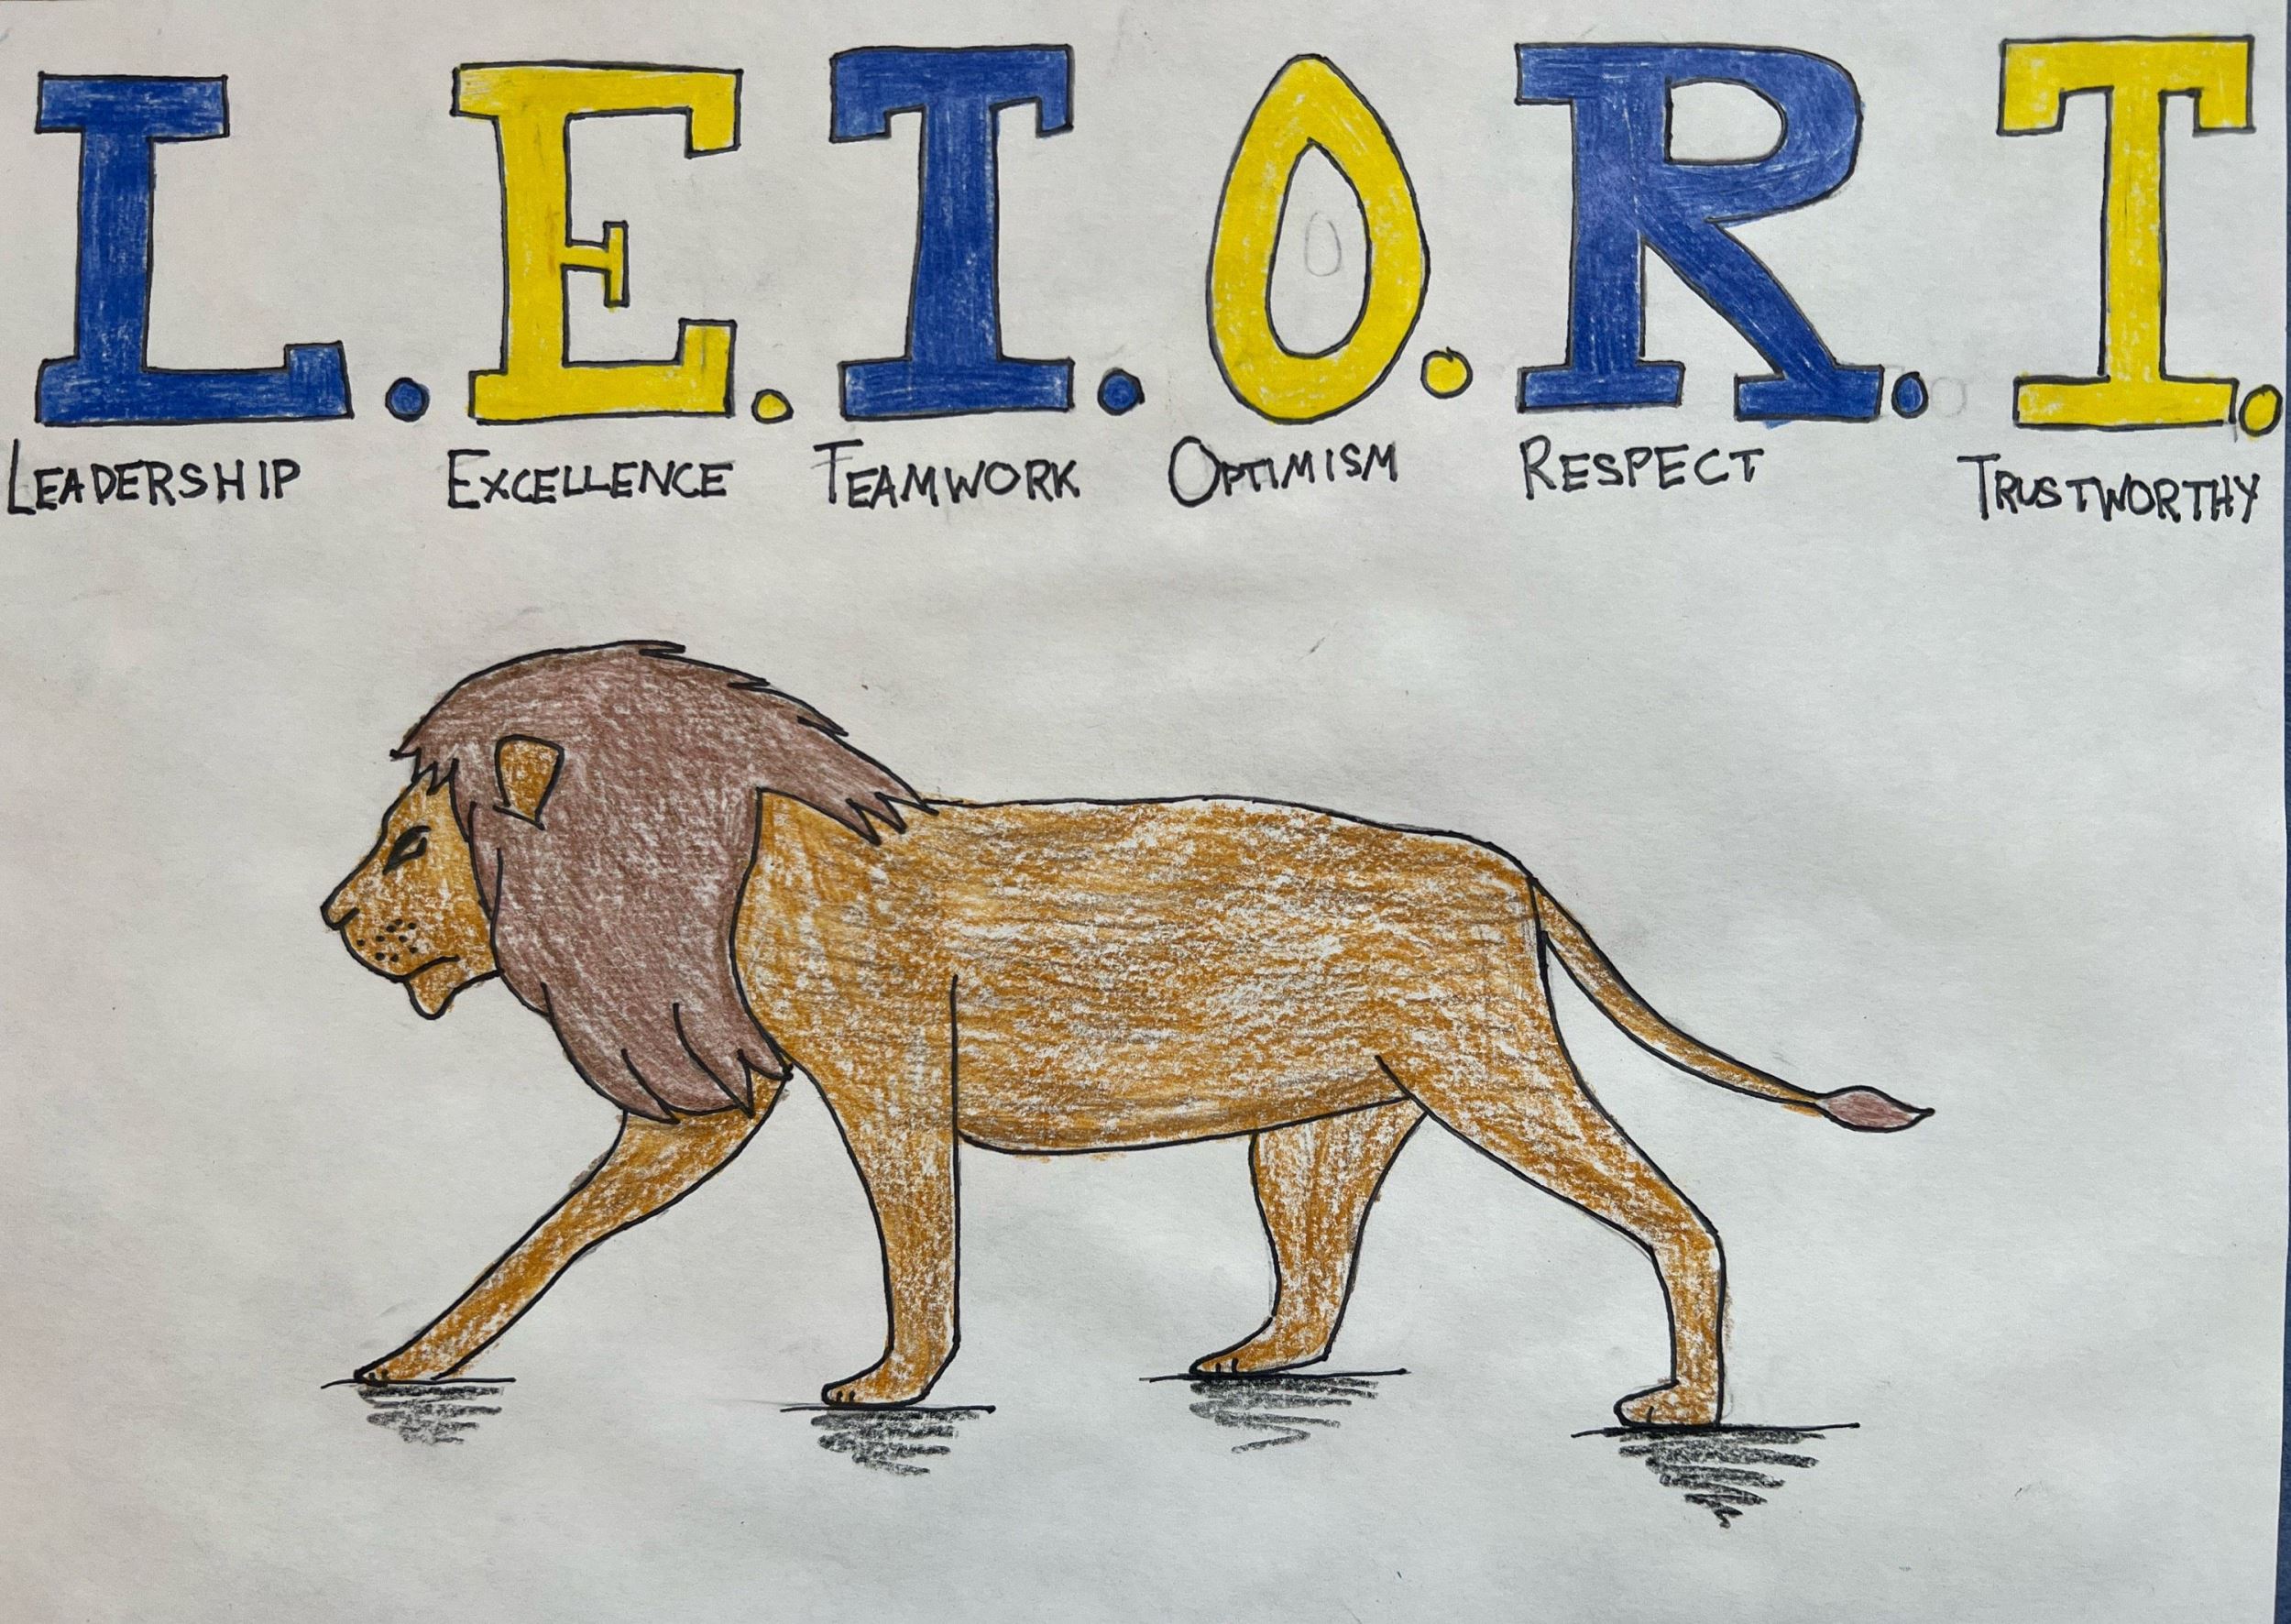 L.E.T.O.R.T.
LEADERSHIP EXCELLENCE TEAMWORK OPTIMISM RESPECT TRUSTWORTHY